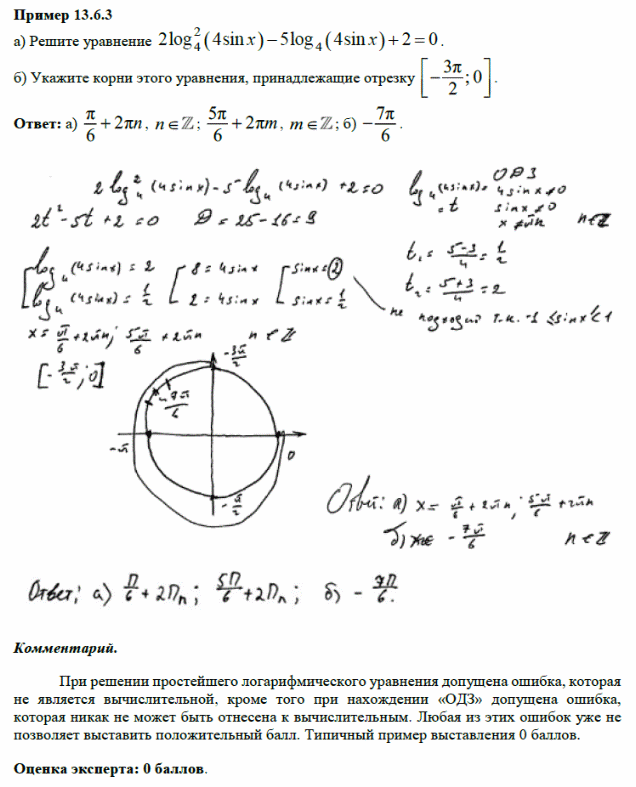 Пример 13.6.3
а) Решите уравнение 2log₄²(4sin x) − 5log₄(4sin x) + 2 = 0.
б) Укажите корни этого уравнения, принадлежащие отрезку [−3π/2; 0].
Ответ: а) π/6 + 2πn, n∈ℤ; 5π/6 + 2πm, m∈ℤ; б) −7π/6.
ОДЗ
2log₄²(4sinx) − 5log₄(4sinx) + 2 = 0 log₄(4sinx) = t 4sinx ≠ 0
2t² − 5t + 2 = 0 D = 25 − 16 = 9 sinx ≠ 0
x ≠ πn n∈Z
log₄(4sinx) = 2 8 = 4sinx sinx = 2 t₁ = (5−3)/4 = 1/2
log₄(4sinx) = 1/2 2 = 4sinx sinx = 1/2 t₂ = (5+3)/4 = 2
не подходит т.к. −1 ≤ sinx ≤ 1
x = π/6 + 2πn; 5π/6 + 2πn n∈Z
[−3π/2; 0]
−3π/2
−7π/6
−π 0
−π/2
Ответ: а) x = π/6 + 2πn; 5π/6 + 2πn
б) −7π/6 n∈Z
Ответ: а) П/6 + 2Пn; 5П/6 + 2Пn; б) −7П/6.
Комментарий.
При решении простейшего логарифмического уравнения допущена ошибка, которая
не является вычислительной, кроме того при нахождении «ОДЗ» допущена ошибка,
которая никак не может быть отнесена к вычислительным. Любая из этих ошибок уже не
позволяет выставить положительный балл. Типичный пример выставления 0 баллов.
Оценка эксперта: 0 баллов.